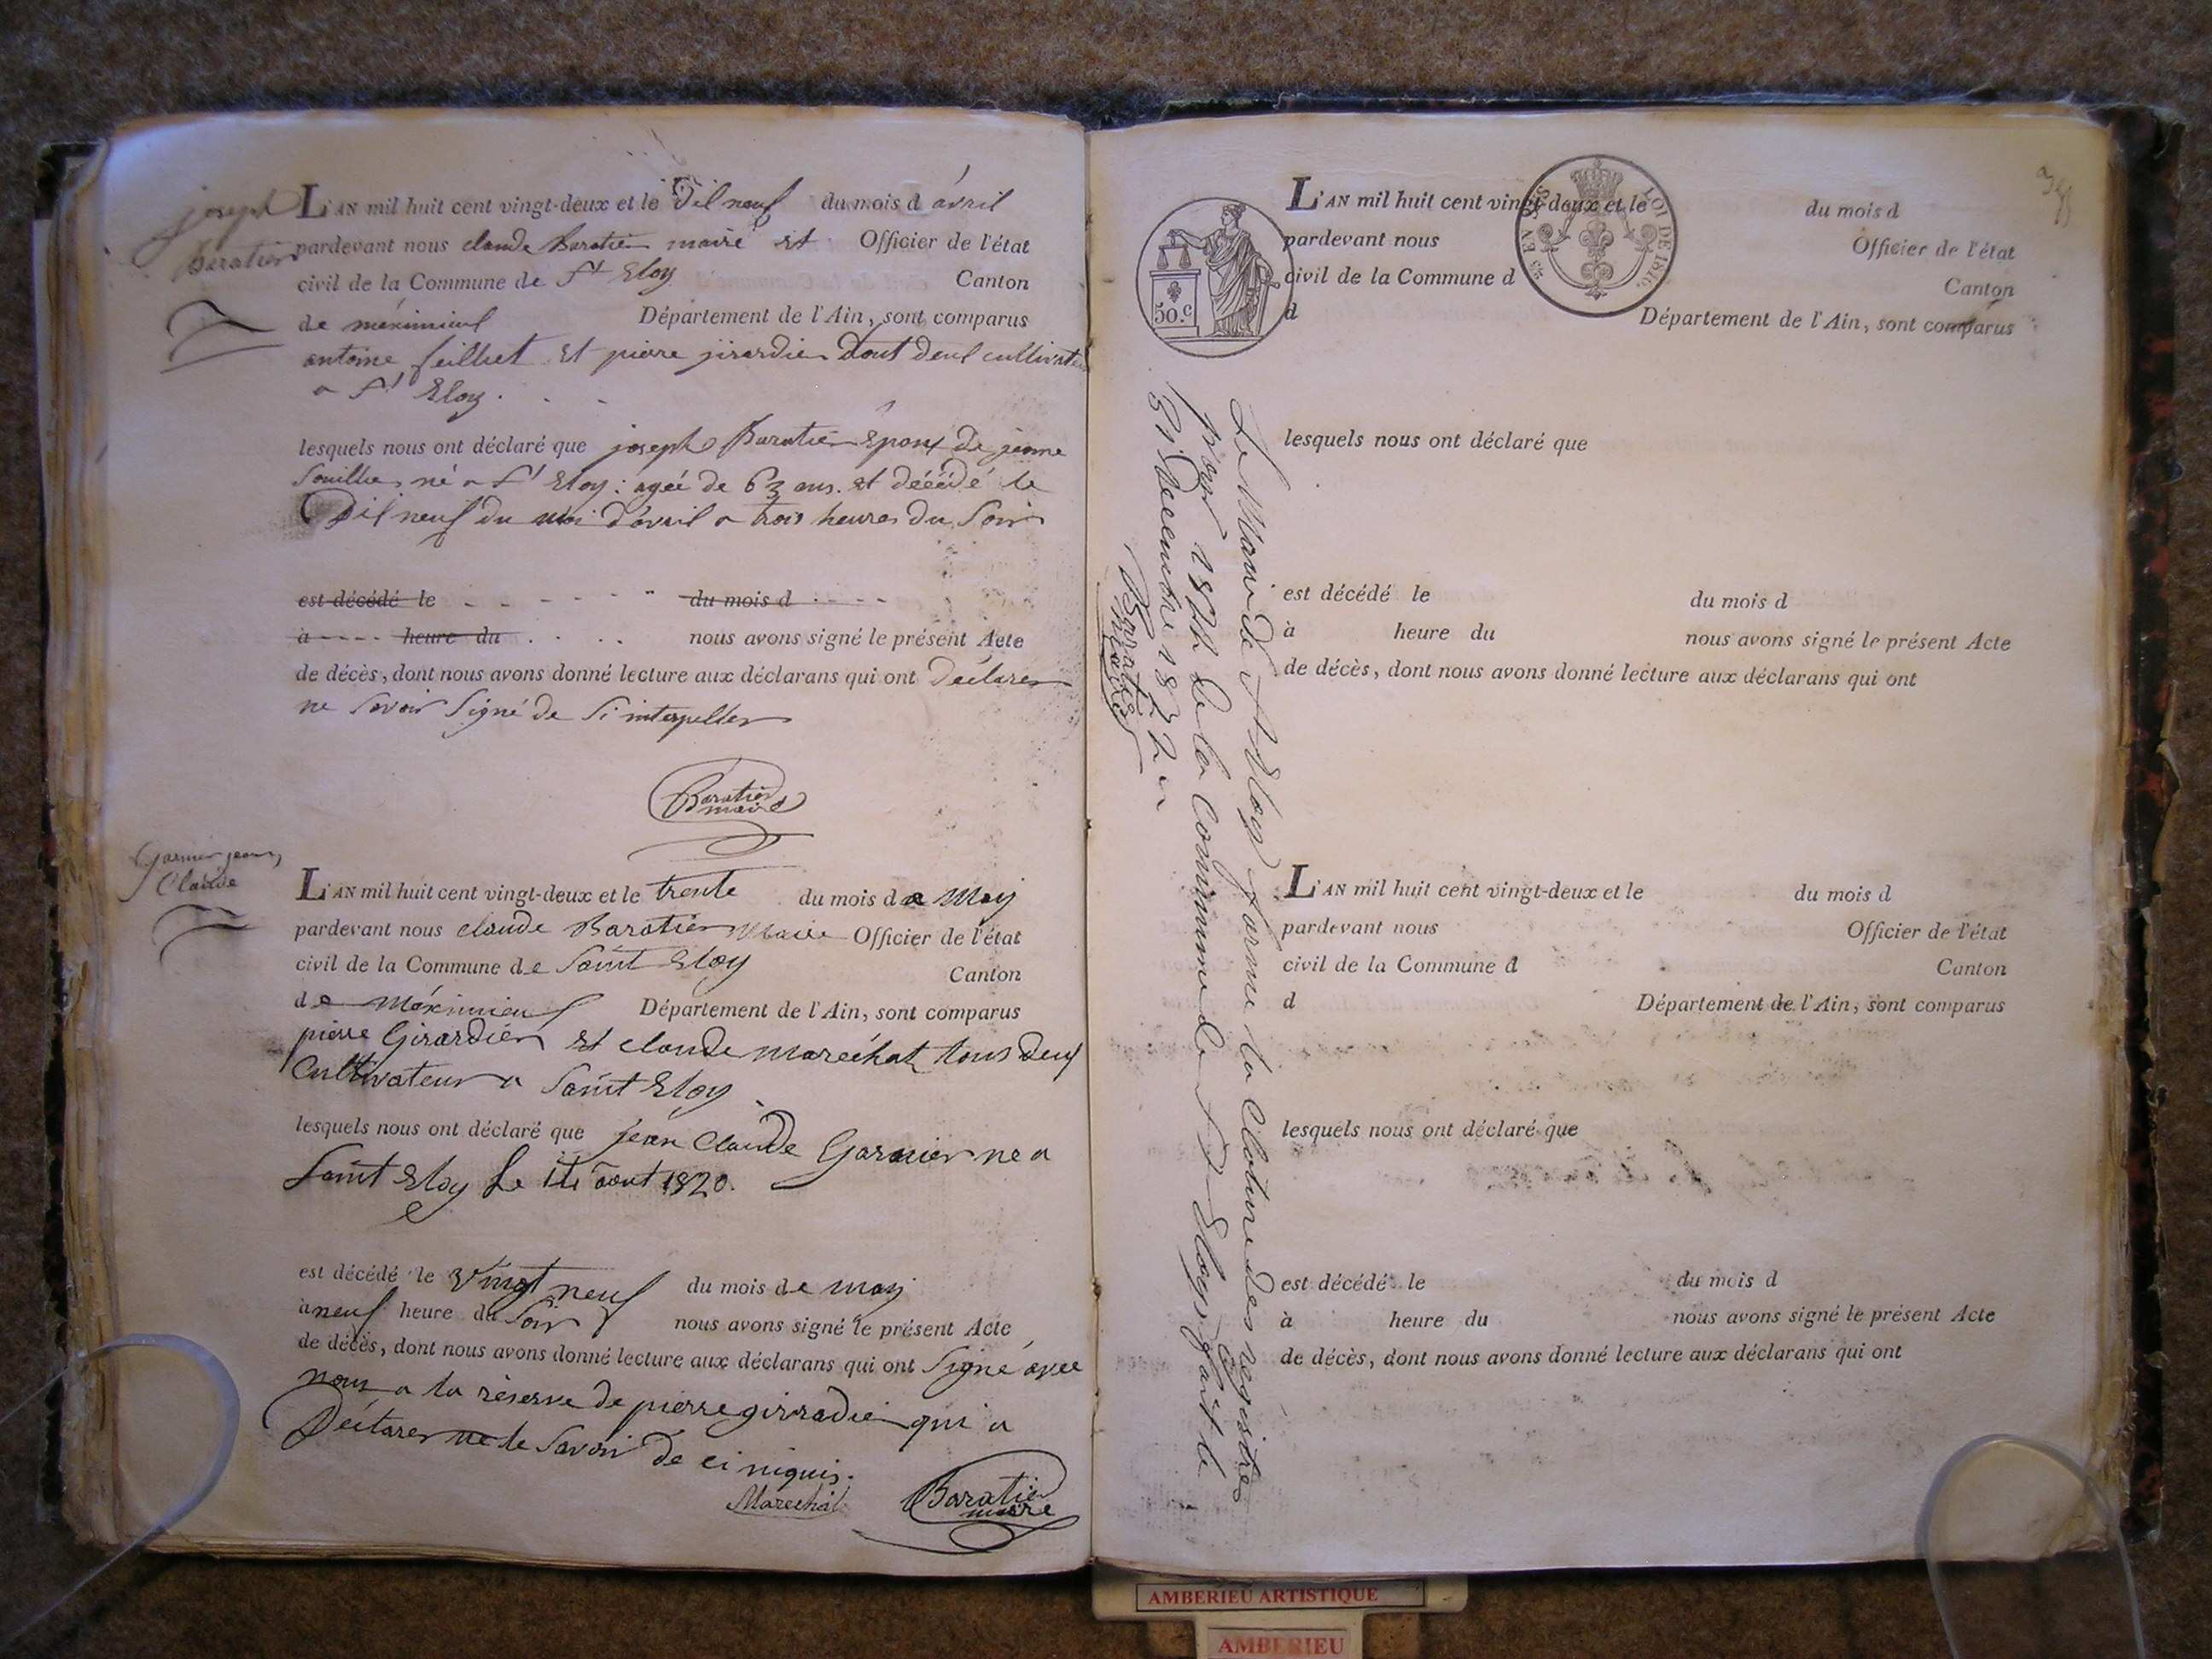 joseph
Baratier
L'AN mil huit cent vingt-deux et le Dix neuf du mois d avril
pardevant nous claude Baratier maire et Officier de l'état
civil de la Commune de St Eloy Canton
de méximieux Département de l'Ain, sont comparus
antoine feillet et pierre jirardier tout deux cultivateur
a St Eloy.
lesquels nous ont déclaré que joseph Baratier Epoux de jeanne
né a St Eloy : agée de 63 ans. et décédé le
Dix neuf du moi d'avril a trois heures du Soir
est décédé le du mois d
à heure du nous avons signé le présent Acte
de décès, dont nous avons donné lecture aux déclarans qui ont Déclarer
ne Savoir Signé de Si interpeller
Baratier
maire
Garnier jean
Claude
L'AN mil huit cent vingt-deux et le trente du mois de May
pardevant nous claude Baratier Maire Officier de l'état
civil de la Commune de Saint Eloy Canton
de Méximieux Département de l'Ain, sont comparus
pierre Girardier et claude maréchal tous deux
Cultivateur a Saint Eloy
lesquels nous ont déclaré que jean Claude Garnier ne a
Saint Eloy Le août 1820.
est décédé le Vingt neuf du mois de may
à neuf heure du Soir nous avons signé le présent Acte
de décès, dont nous avons donné lecture aux déclarans qui ont Signé avec
nous a la réserve de pierre girradier qui a
Déclarer ne le Savoir de ci
Marechal
Baratier
maire
L'AN mil huit cent vingt-deux et le du mois d
pardevant nous Officier de l'état
civil de la Commune d Canton
d Département de l'Ain, sont comparus
50.c
LOI DE 1816.
lesquels nous ont déclaré que
est décédé le du mois d
à heure du nous avons signé le présent Acte
de décès, dont nous avons donné lecture aux déclarans qui ont
L'AN mil huit cent vingt-deux et le du mois d
pardevant nous Officier de l'état
civil de la Commune d Canton
d Département de l'Ain, sont comparus
lesquels nous ont déclaré que
est décédé le du mois d
à heure du nous avons signé le présent Acte
de décès, dont nous avons donné lecture aux déclarans qui ont
Le Maire de St Eloy la Cloture des registres
pour de la Commune de St Eloy fait le
31 Decembre 1822
Baratier
maire
AMBERIEU ARTISTIQUE
AMBERIEU